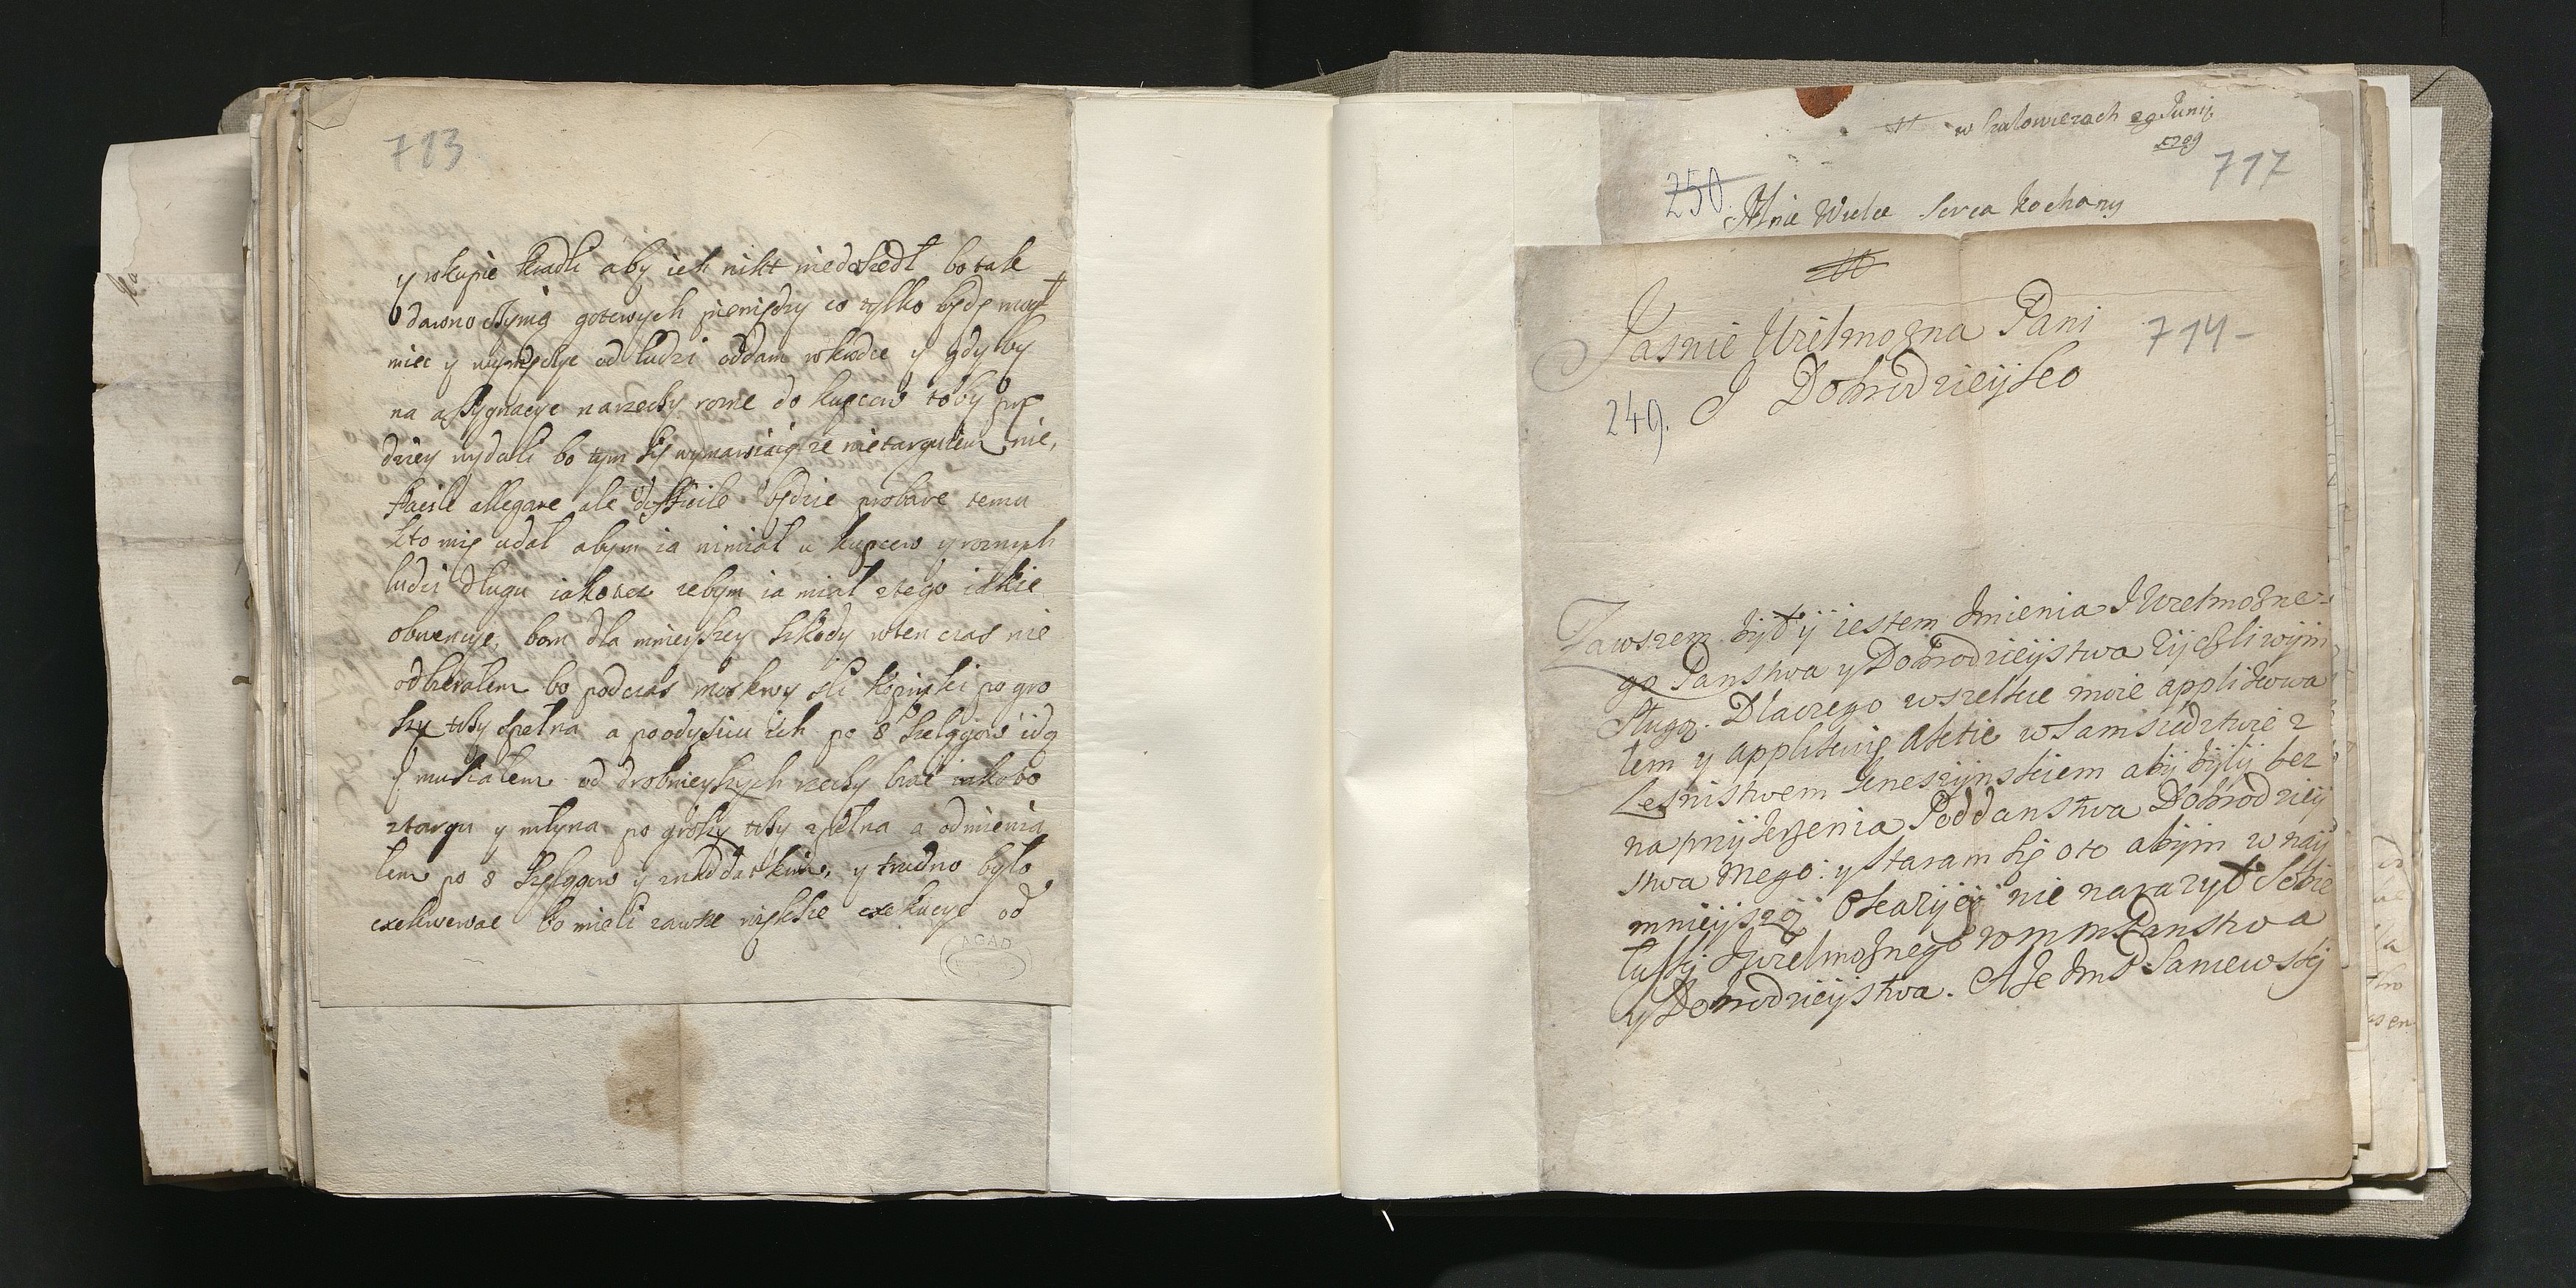 713
y wkupie kradli aby ich nikt niedoszedł bo tak
dawno czynią gotowych pieniędzy co tylko będę mogł
miec y wyme od ludzi oddam wkrodce y gdy by
na assygnacye narzeczy rozne do kupcow to by prę
dzey wydali bo tym się wymawiaią ze nietargutem nie,
facile allegare ale difficile będzie probare temu
kto mię udał abym ia nimiał u kupcow y roznych
ludzi długu iakotez zebym ia miał ztego iakie
obwencye, bom dla mnieyszey szkody wten czas nie
odbierałem bo podczas moskwy szli kopiyki po gro
szy tby spełna a poodyściu ich po 8 szelągow idą
y musiałem od drobnieyszych rzeczy brać iakoto
ztargu y młyna po groszy tby zpełna a odmienia
łem po 8 szelągow y znaddatkiem, y trudno było
exekwować bo mieli zawsze większe exekucye od
AGAD
w 29 Junij
1709
717
250.
Mnie Wielce serca kochany
714-
Jasnie Wielmozna Pani
249. I Dobrodzieijko
Zawszem bijł ij iestem Imienia J Wielmozne-
go Panstwa y Dobrodzieijstwa zijczliwijm
sługą. Dlaczego wszelkie moie applikowa
łem y applikuię Aktie w Samsiedztwie z
Lesnistwem Kneszijnskiem abij bijlij bez
naprzijkrzenia Poddanstwa Dobrodzieij
stwa mego: y staram się oto abijm w naij
mnieijszeij Okazijeij nie naraził sobie
łaskij Jwielmoznego wm m Panstwa
y Dobrodzieijstwa. A ze Jmś P. Saniewskij